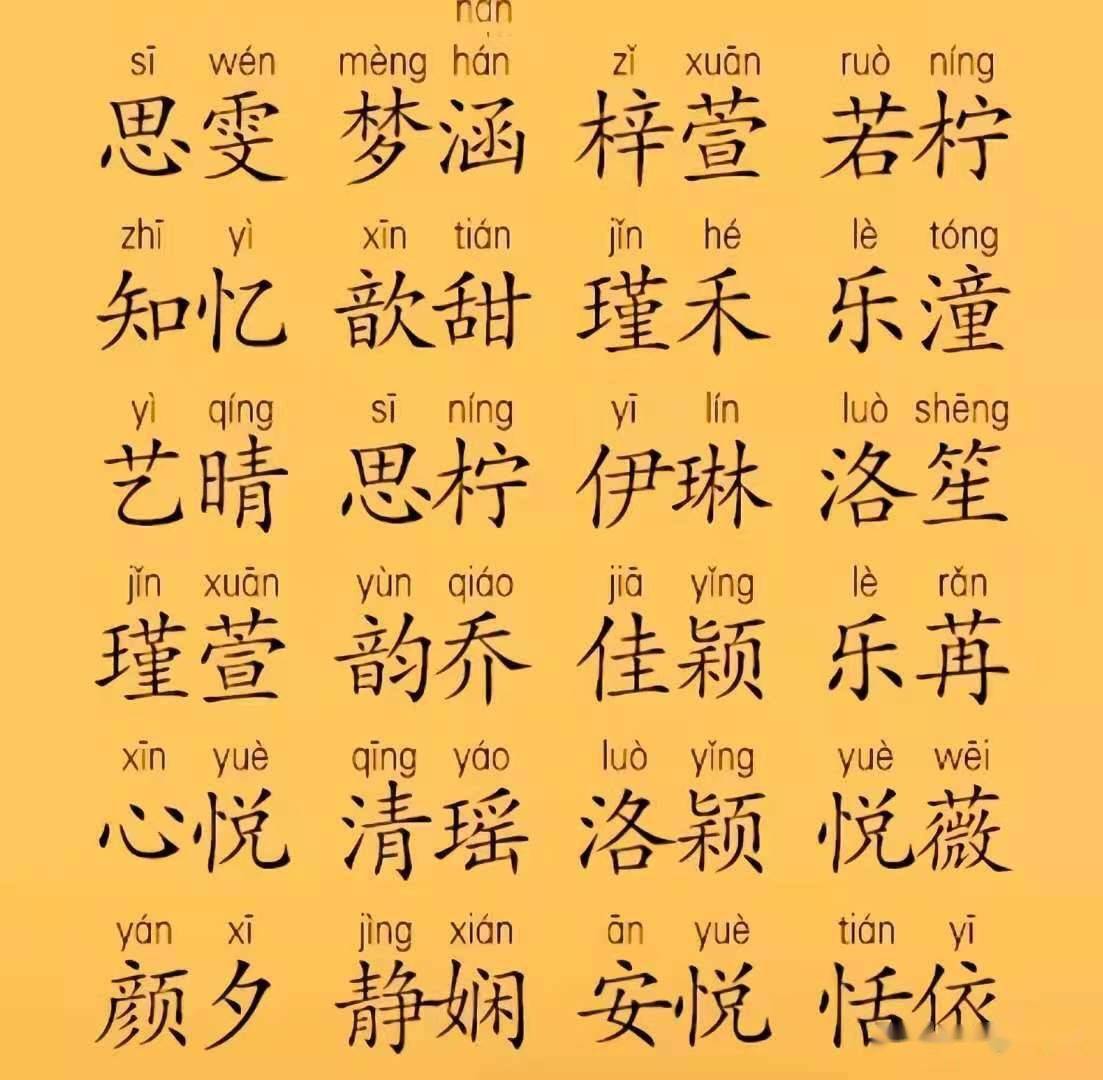 hán
sī wén mèng hán zǐ xuān ruò níng
思雯 梦涵 梓萱 若柠
zhī yì xīn tián jǐn hé lè tóng
知忆 歆甜 瑾禾 乐潼
yì qíng sī níng yī lín luò shēng
艺晴 思柠 伊琳 洛笙
jǐn xuān yùn qiáo jiā yǐng lè rǎn
瑾萱 韵乔 佳颖 乐苒
xīn yuè qīng yáo luò yǐng yuè wēi
心悦 清瑶 洛颖 悦薇
yán xī jìng xián ān yuè tián yī
颜夕 静娴 安悦 恬依